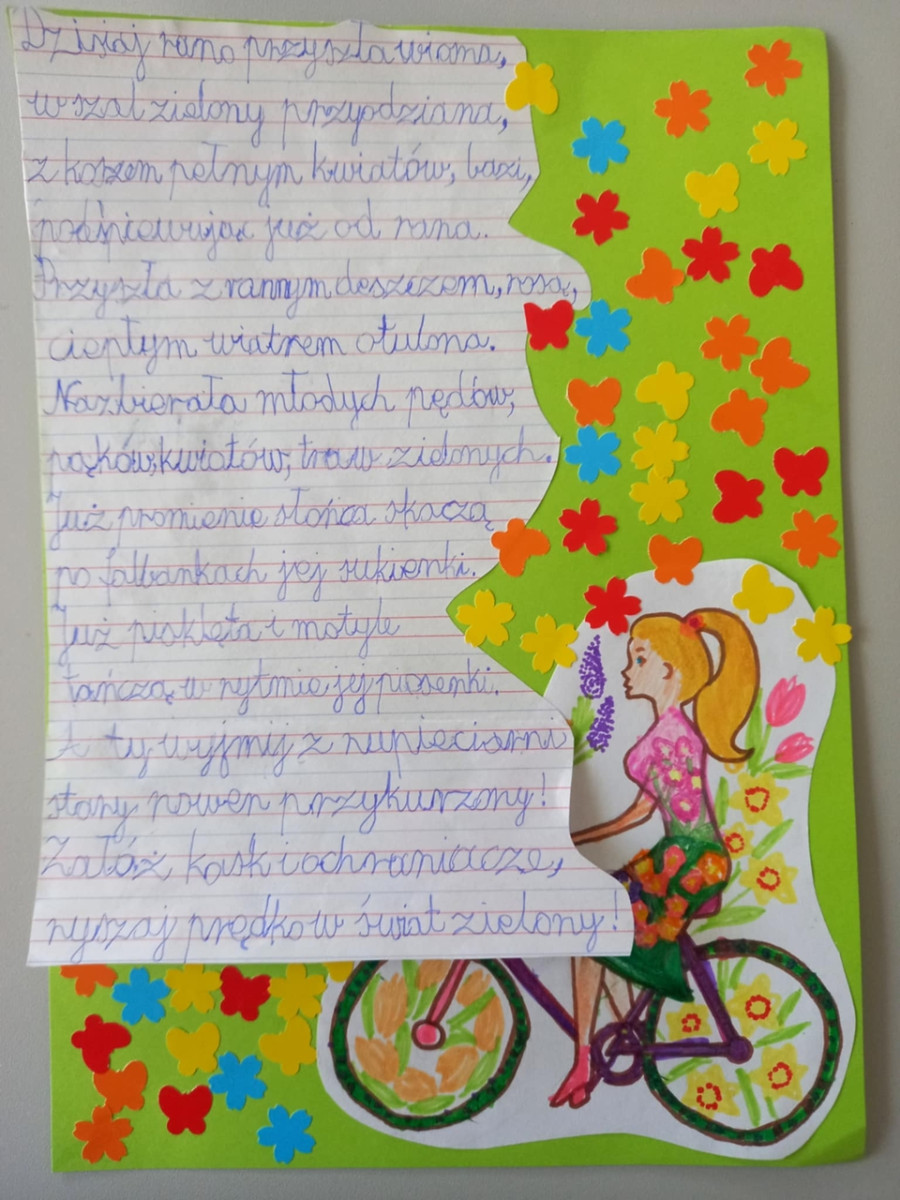 Dzisiaj rano przyszła wiosna,
w szal zielony przyodziana,
z koszem pełnym kwiatów, bazi,
podśpiewując już od rana.
Przyszła z rannym deszczem, rosą,
ciepłym wiatrem otulona.
Nazbierała młodych pędów,
pąków, kwiatów, traw zielonych.
Już promienie słońca skaczą
po falbankach jej sukienki.
Już pisklęta i motyle
tańczą w rytmie jej piosenki.
A ty wyjmij z rupieciarni
stary rower przykurzony!
Załóż kask i ochraniacze,
ruszaj prędko w świat zielony!